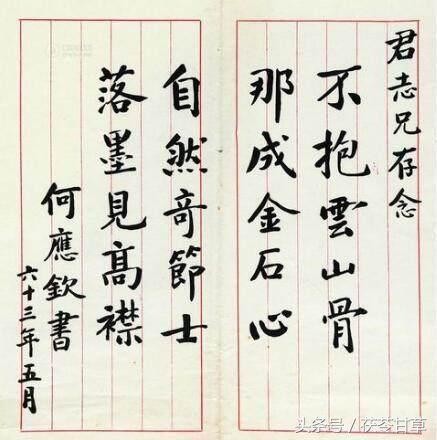 君志兄存念
不抱雲山骨
那成金石心
自然奇節士
落墨見高襟
何應欽書
六十三年五月
头条号/茯苓甘草